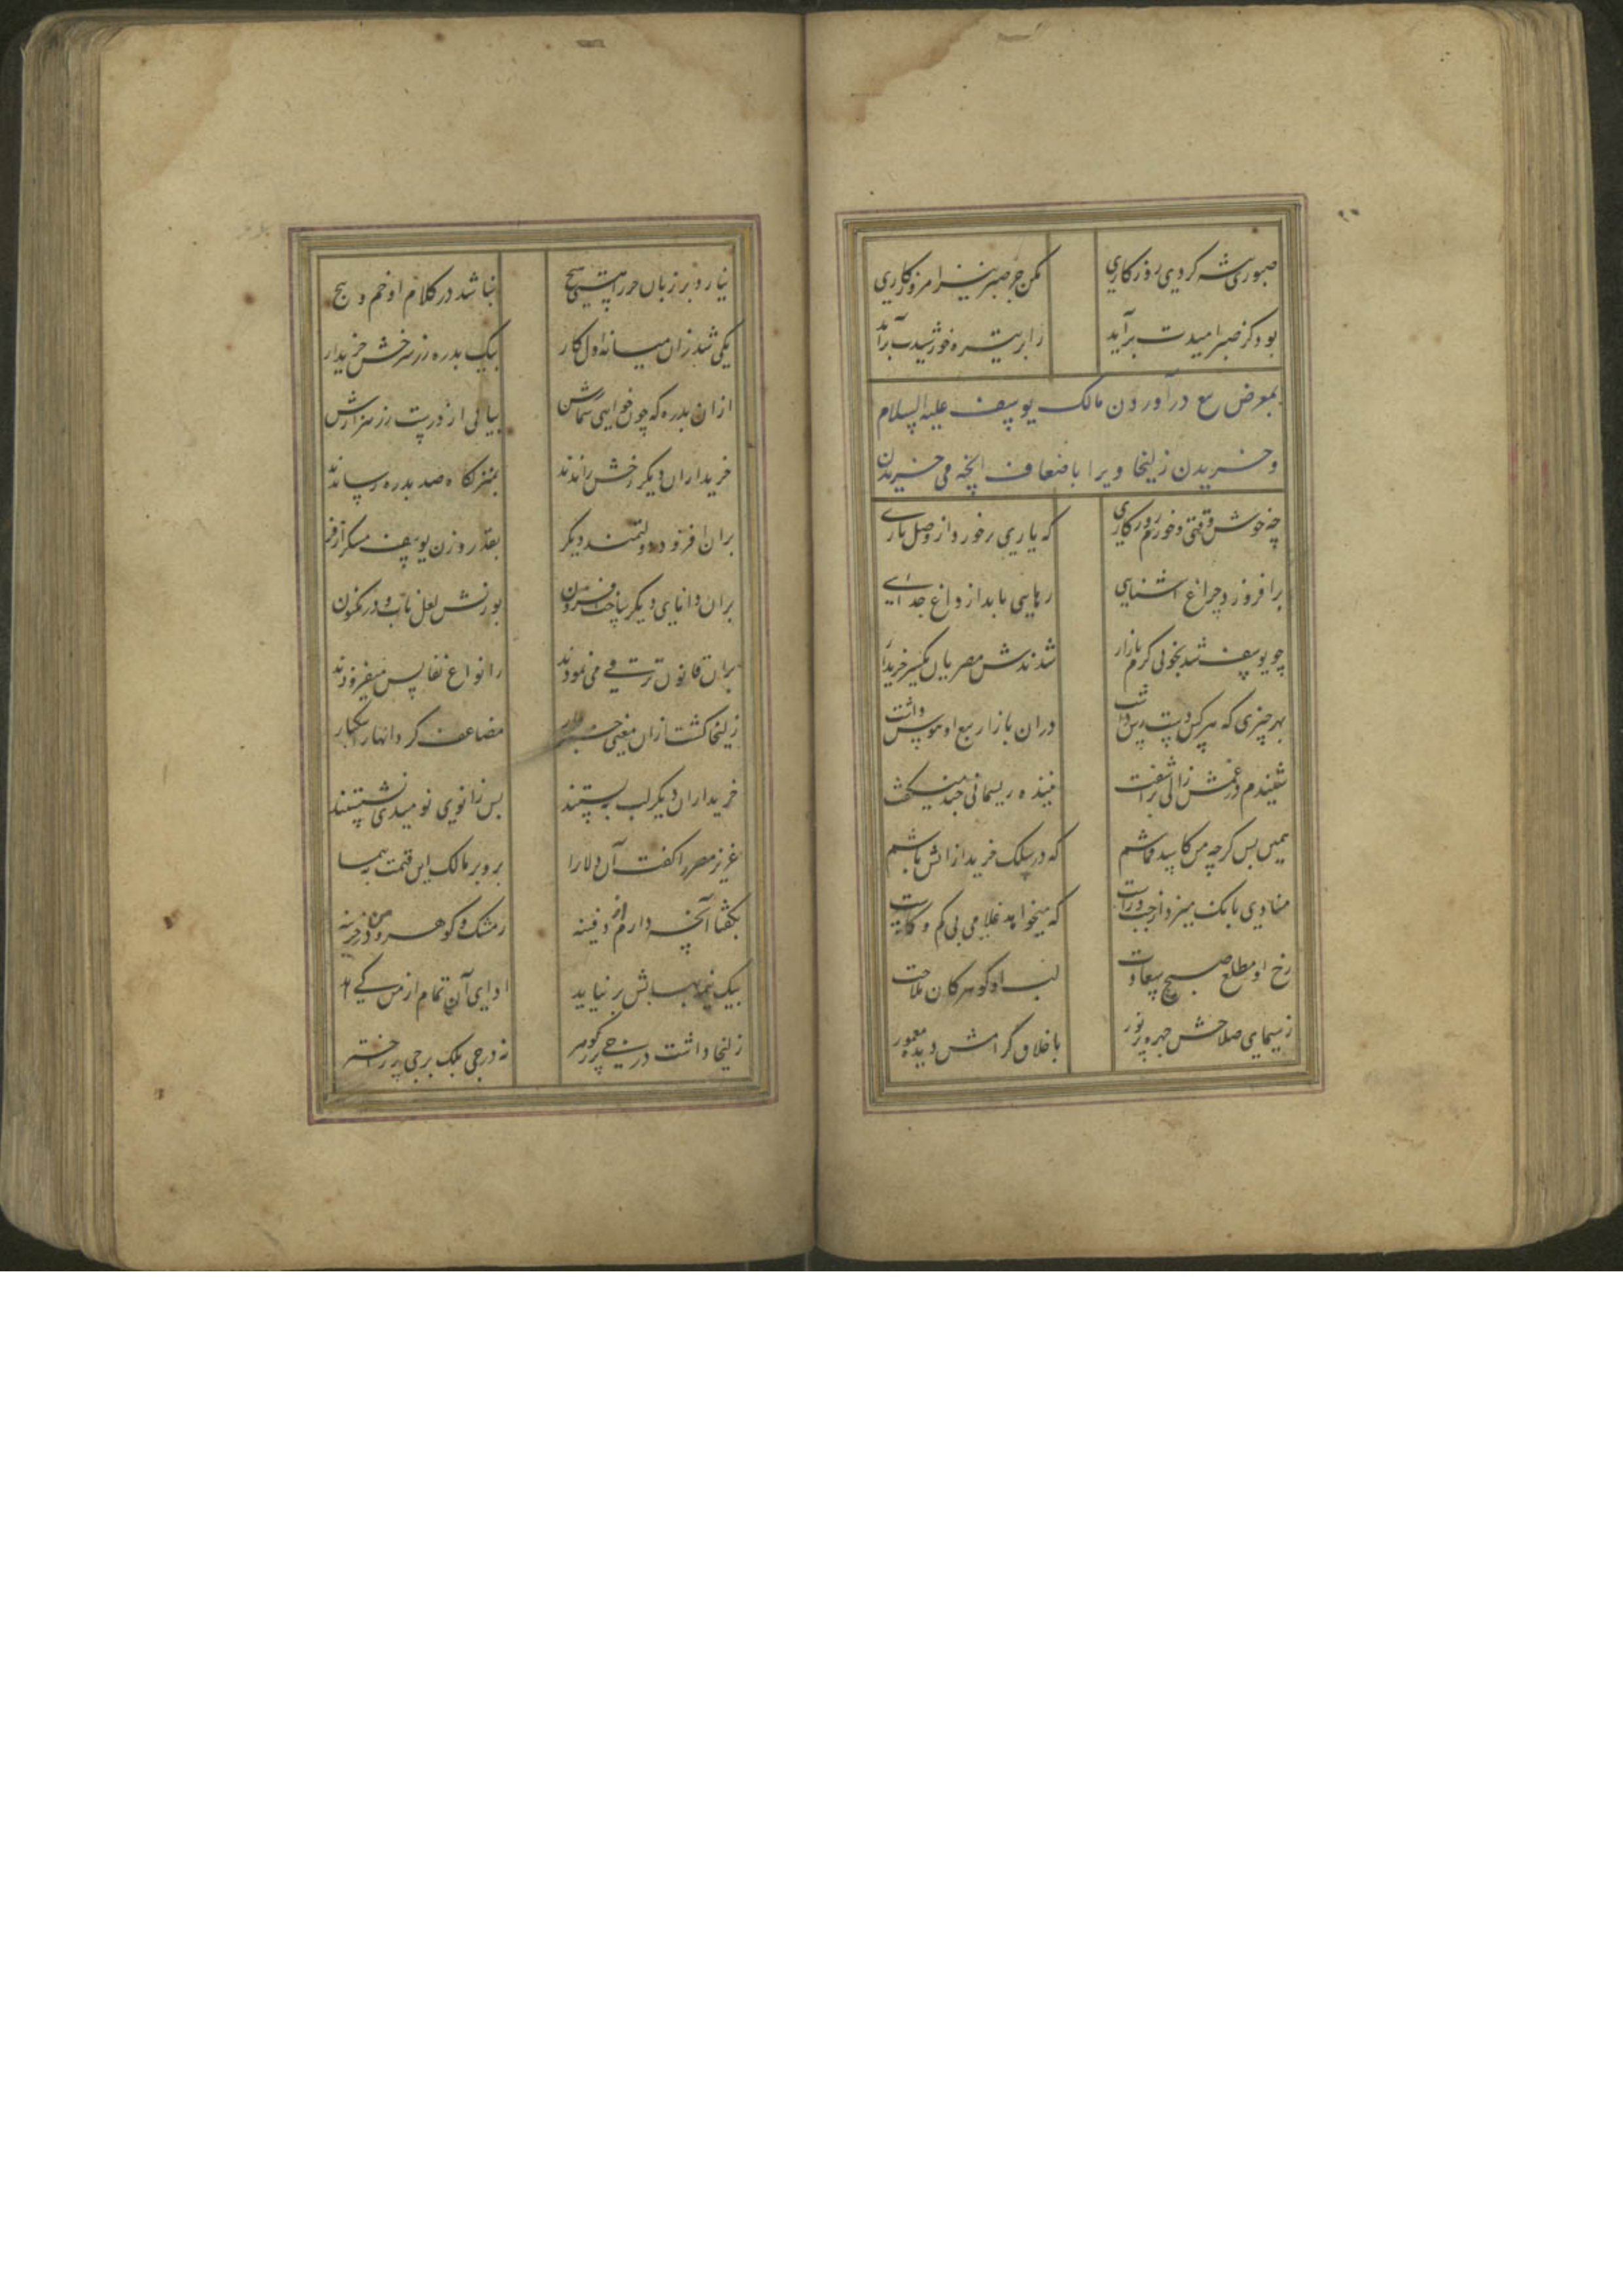 صبوری پیشه کردی روزگاری
مکن جز صبر نیز امروز کاری
بود کز صبر امیدت برآید
ز ابر تیره خورشیدت برآید
بمعرض بیع درآوردن مالک یوسف علیه السلام
و خریدن زلیخا ویرا باضعاف انچه می خریدن
چه خوش وقتی و خورم روزکاری
که یاری برخورد از وصل یاری
برافروزد چراغ اشنایی
رهایی یابد از داغ جدایی
چو یوسف شد بخوبی کرم بازار
شدندش مصریان یکسر خریدار
بهر چیزی که هر کس دست رس داشت
دران بازار بیع او هوس داشت
شنیدم در غمش زالی برآشفت
تنیده ریسمانی چند میکفت
همین بس کرچه من کاسد قماشم
که در سلک خریدارانش باشم
منادی بانک میزد از چپ و راست
که میخواهد غلامی بی کم و کاست
رخ او مطلع صبح سعادت
لب او کوهر کان ملاحت
ز سیمای صلاحش چهره پر نور
باخلاق گرامش دیده معمور
نیارد بر زبان جز راستی هیچ
نباشد در کلام او خم و پیچ
یکی شد زان میانه اول کار
بیک بدره زر سرخش خریدار
ازان بدره که چون خواهی شمارش
بیابی از درست زر هزارش
خریداران دیکر رخش راندند
بمنزلکاه صد بدره رساندند
بران افزود دولتمند دیکر
بقدر وزن یوسف مشک اذفر
بران دانای دیکر ساخت افزون
بوزنش لعل ناب و در مکنون
بران قانون ترقی می نمودند
ز انواع نفایس میفزودند
زلیخا کشت ازان معنی خبردار
مضاعف کرد انها را بیکبار
خریداران دیکر لب ببستند
پس زانوی نومیدی نشستند
عزیز مصر را کفت آن دلارا
برو بر مالک این قیمت بپیما
بکفتا آنچه دارم از دفینه
ز مشک و کوهر و زر در خزینه
بیک نیمه بهایش بر نیاید
ادای آن تمام از من کی آید
زلیخا داشت درجی پر ز کوهر
نه درجی بلک برجی پر ز اختر